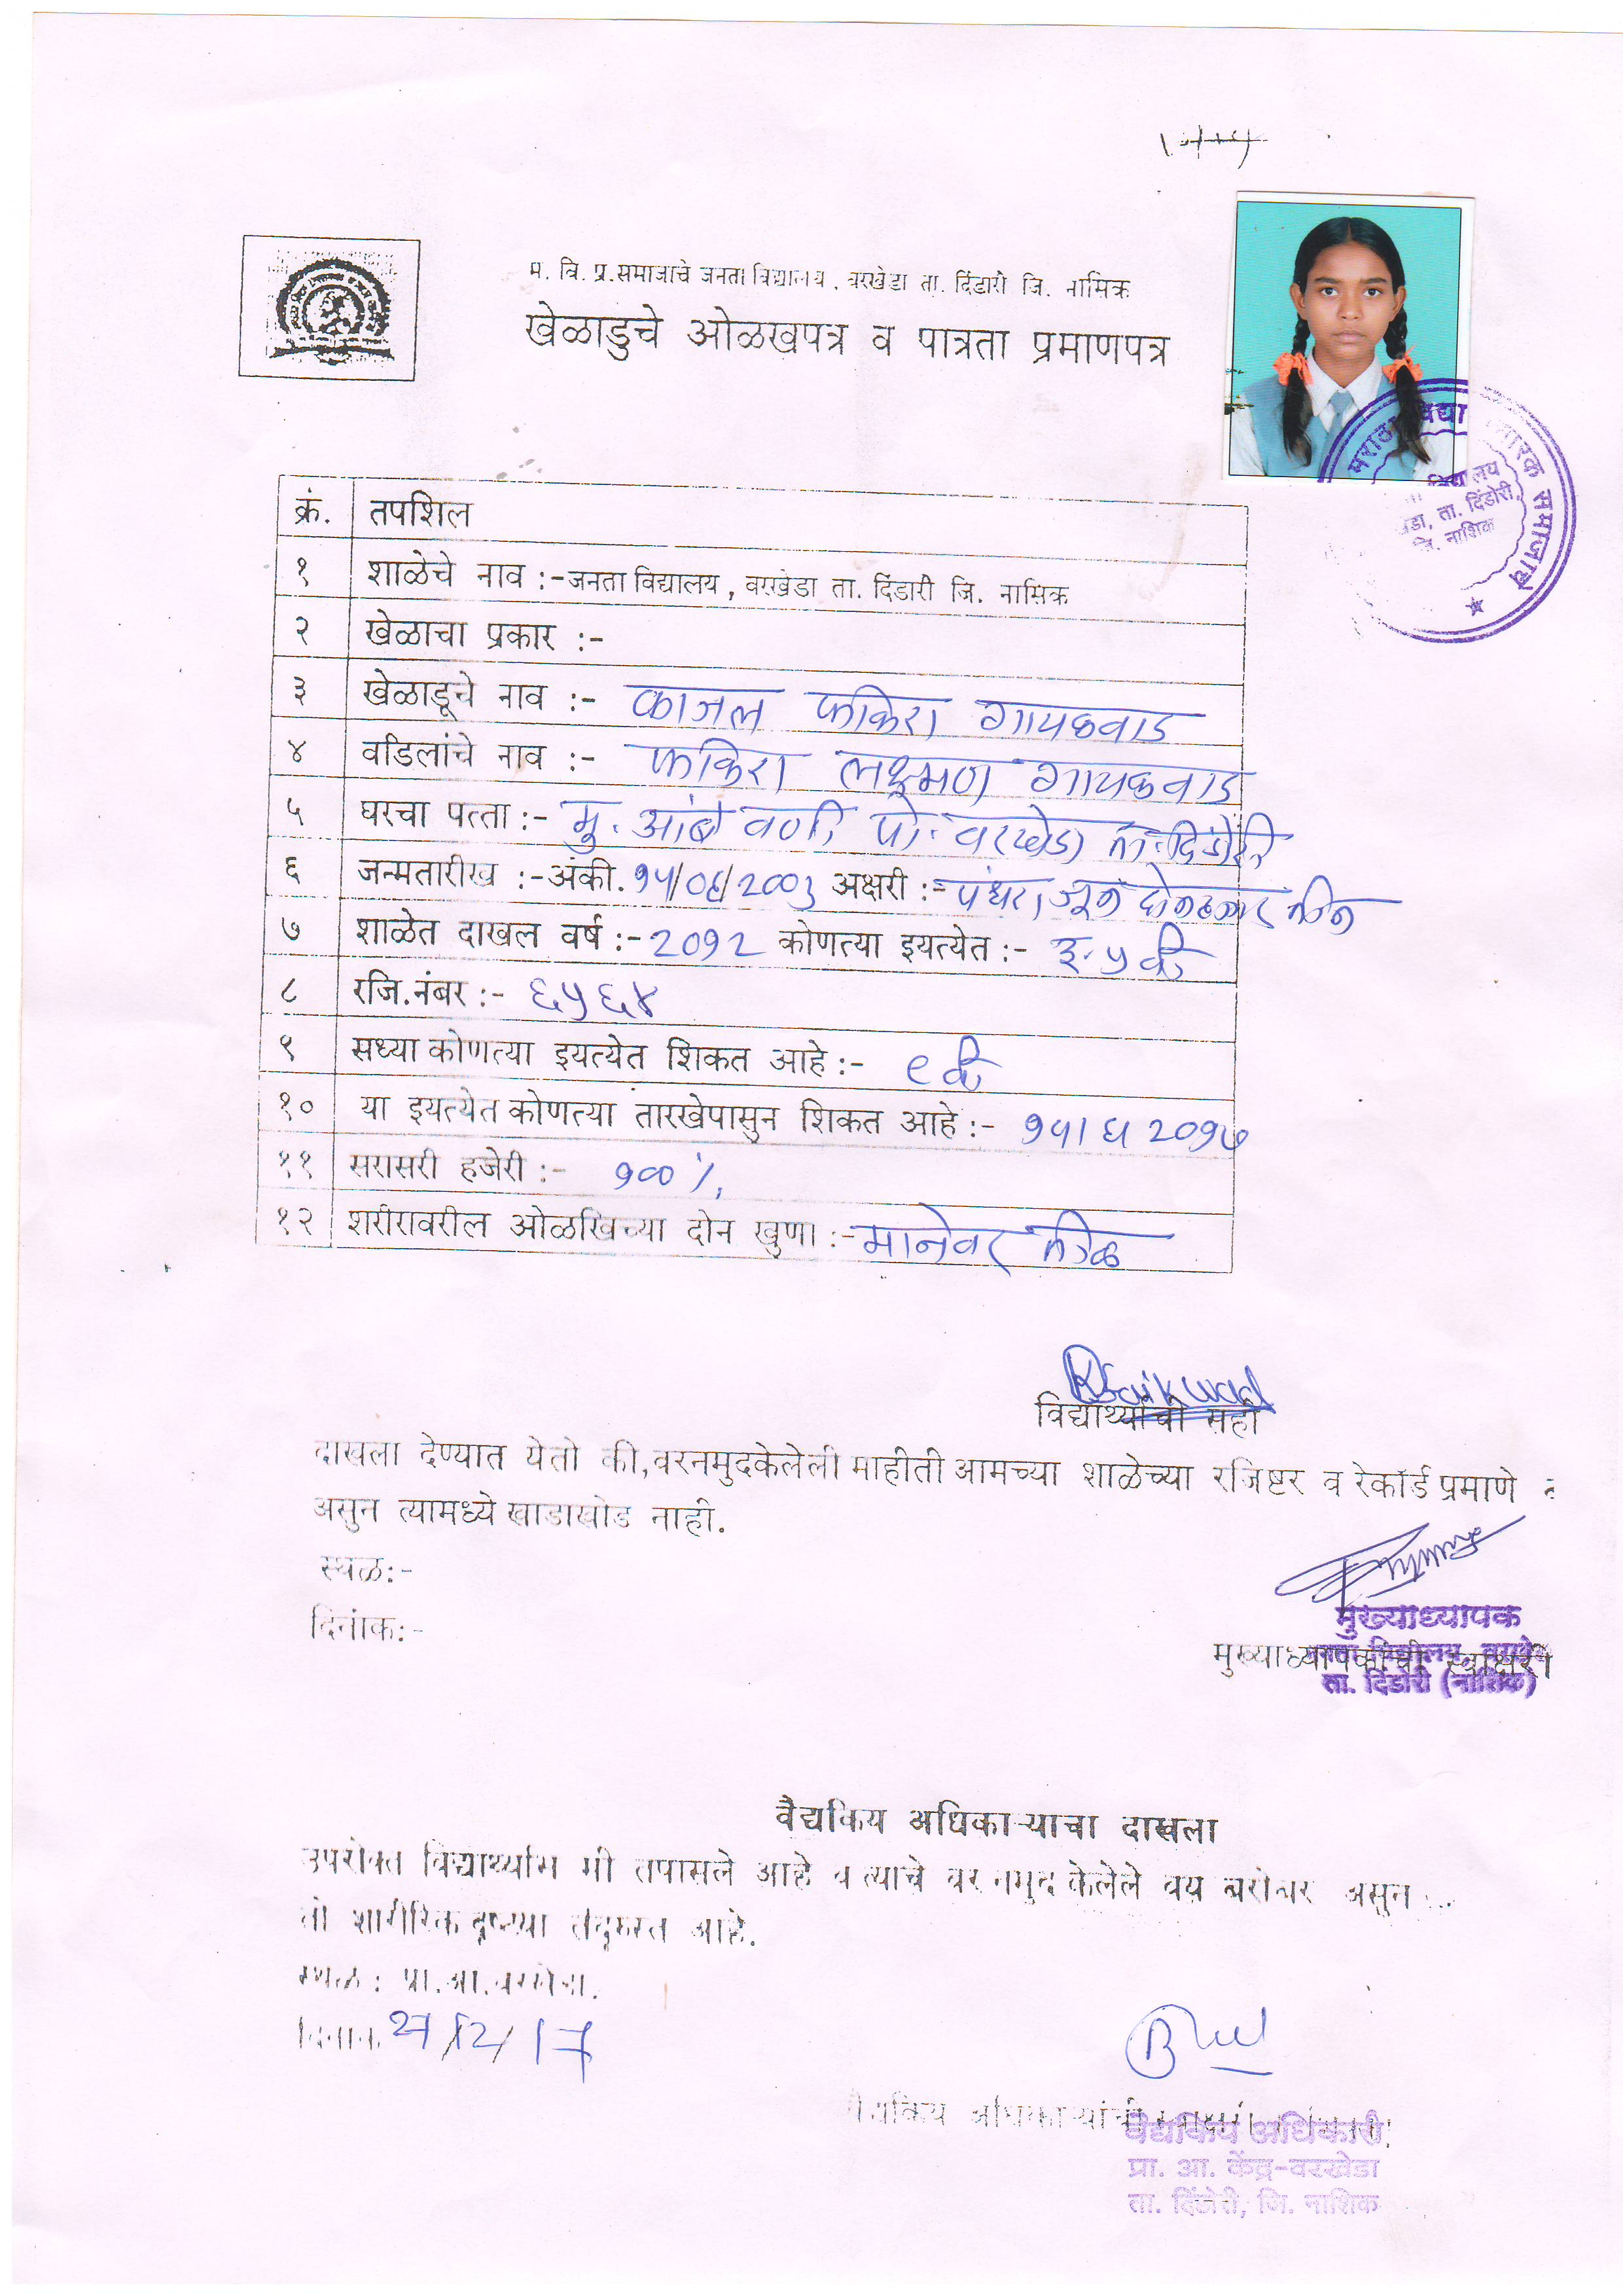 म. वि. प्र. समाजाचे जनता विद्यालय, वरखेडा ता. दिंडारी जि. नासिक
खेळाडुचे ओळखपत्र व पात्रता प्रमाणपत्र
मराठा विद्या प्रसारक समाजाचे
विद्यालय
ता. दिंडोरी,
जि. नाशिक
क्रं. तपशिल
१ शाळेचे नाव :- जनता विद्यालय, वरखेडा ता. दिंडारी जि. नासिक
२ खेळाचा प्रकार :-
३ खेळाडूचे नाव :- काजल फकिरा गायकवाड
४ वडिलांचे नाव :- फकिरा लक्ष्मण गायकवाड
५ घरचा पत्ता :- मु. आंबे वणी पो. वरखेडा ता. दिंडोरी
६ जन्मतारीख :- अंकी. १५/०६/२००३ अक्षरी :- पंधरा जून दोन हजार तीन
७ शाळेत दाखल वर्ष :- २०१२ कोणत्या इयत्येत :- इ. ५ वी
८ रजि. नंबर :- ६५६४
९ सध्या कोणत्या इयत्येत शिकत आहे :- ९ वी
१० या इयत्येत कोणत्या तारखेपासुन शिकत आहे :- १५।६ २०१७
११ सरासरी हजेरी :- १०० %
१२ शरीरावरील ओळखिच्या दोन खुणा :- मानेवर तीळ
Gaikwad
विद्यार्थ्याची सही
दाखला देण्यात येतो की, वरनमुदकेलेली माहीती आमच्या शाळेच्या रजिष्टर व रेकॉर्ड प्रमाणे
असुन त्यामध्ये खाडाखोड नाही.
स्थळ:-
दिनांक:-
मुख्याध्यापक
मुख्याध्यापकाची स्वाक्षरी
ता. दिंडोरी (नाशिक)
वैद्यकिय अधिकाऱ्याचा दाखला
उपरोक्त विद्यार्थ्यास मी तपासले आहे व त्याचे वर नमुद केलेले वय बरोबर असुन
तो शारीरिक दृष्ट्या तंदुरुस्त आहे.
स्थळ : प्रा.आ.वरखेडा.
दिनांक 27/12/17
वैद्यकिय अधिकाऱ्यांची
वैद्यकिय अधिकारी
प्रा. आ. केंद्र-वरखेडा
ता. दिंडोरी, जि. नाशिक